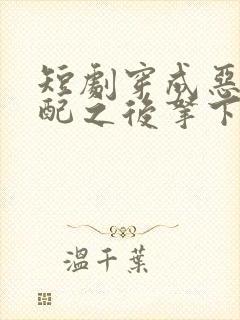 短劇穿成惡
配之後拏下
溫千葉